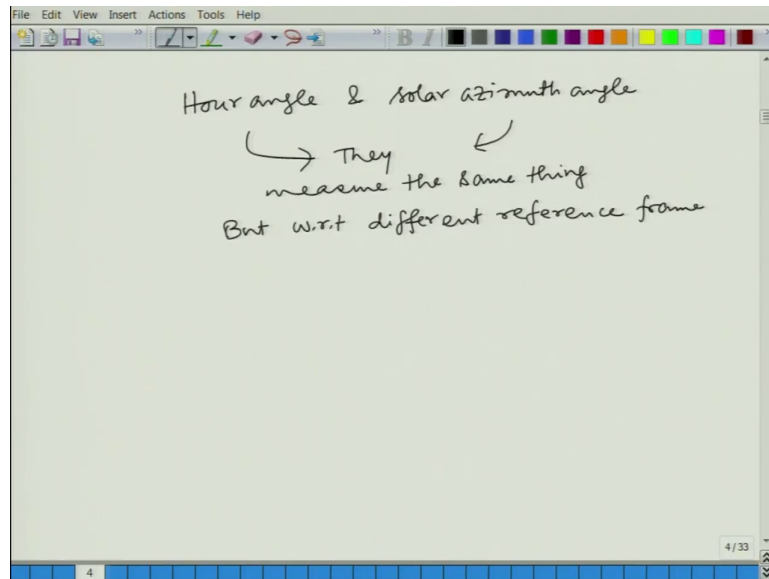 File Edit View Insert Actions Tools Help
B I
Hour angle & solar azimuth angle
They
measure the same thing
But w.r.t different reference frame
4/33
4